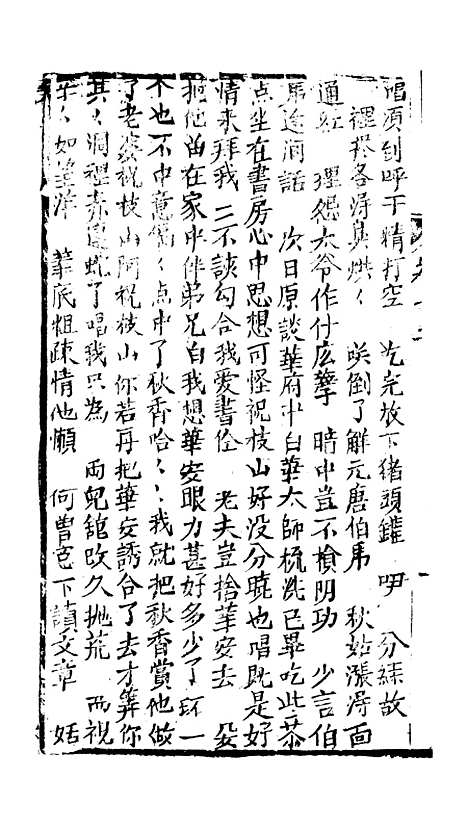 唱項刮呼干精打空　吃完放下猪頭鑵　呷　分綵故
裡拶各淂臭烘〻　咲倒了解元唐伯虎　秋姑漲淂面
通紅　埋怨大爷作什庅孽　時中豈不損阴功　少言伯
虎途间話　次日原談華府中白華太師梳洗已畢吃些茶
点坐在書房心中思想可怪祝枝山好没分曉也唱既是好
情来拜我　二不該勾合我愛書佺　老夫豈捨華安去
拖他留在家中伴弟兄白我想華安眼力甚好多少了环一
个也不中意偏〻点中了秋香哈〻〻我就把秋香賞他做
了老婆祝枝山阿祝枝山你若再把華安誘合了去才筭你
其〻洞裡赤蛇了唱我只為　両兒舘政久抛荒　両視
〻如望洋　華底粗疎情他懶　何曽窓下讀文章　姑